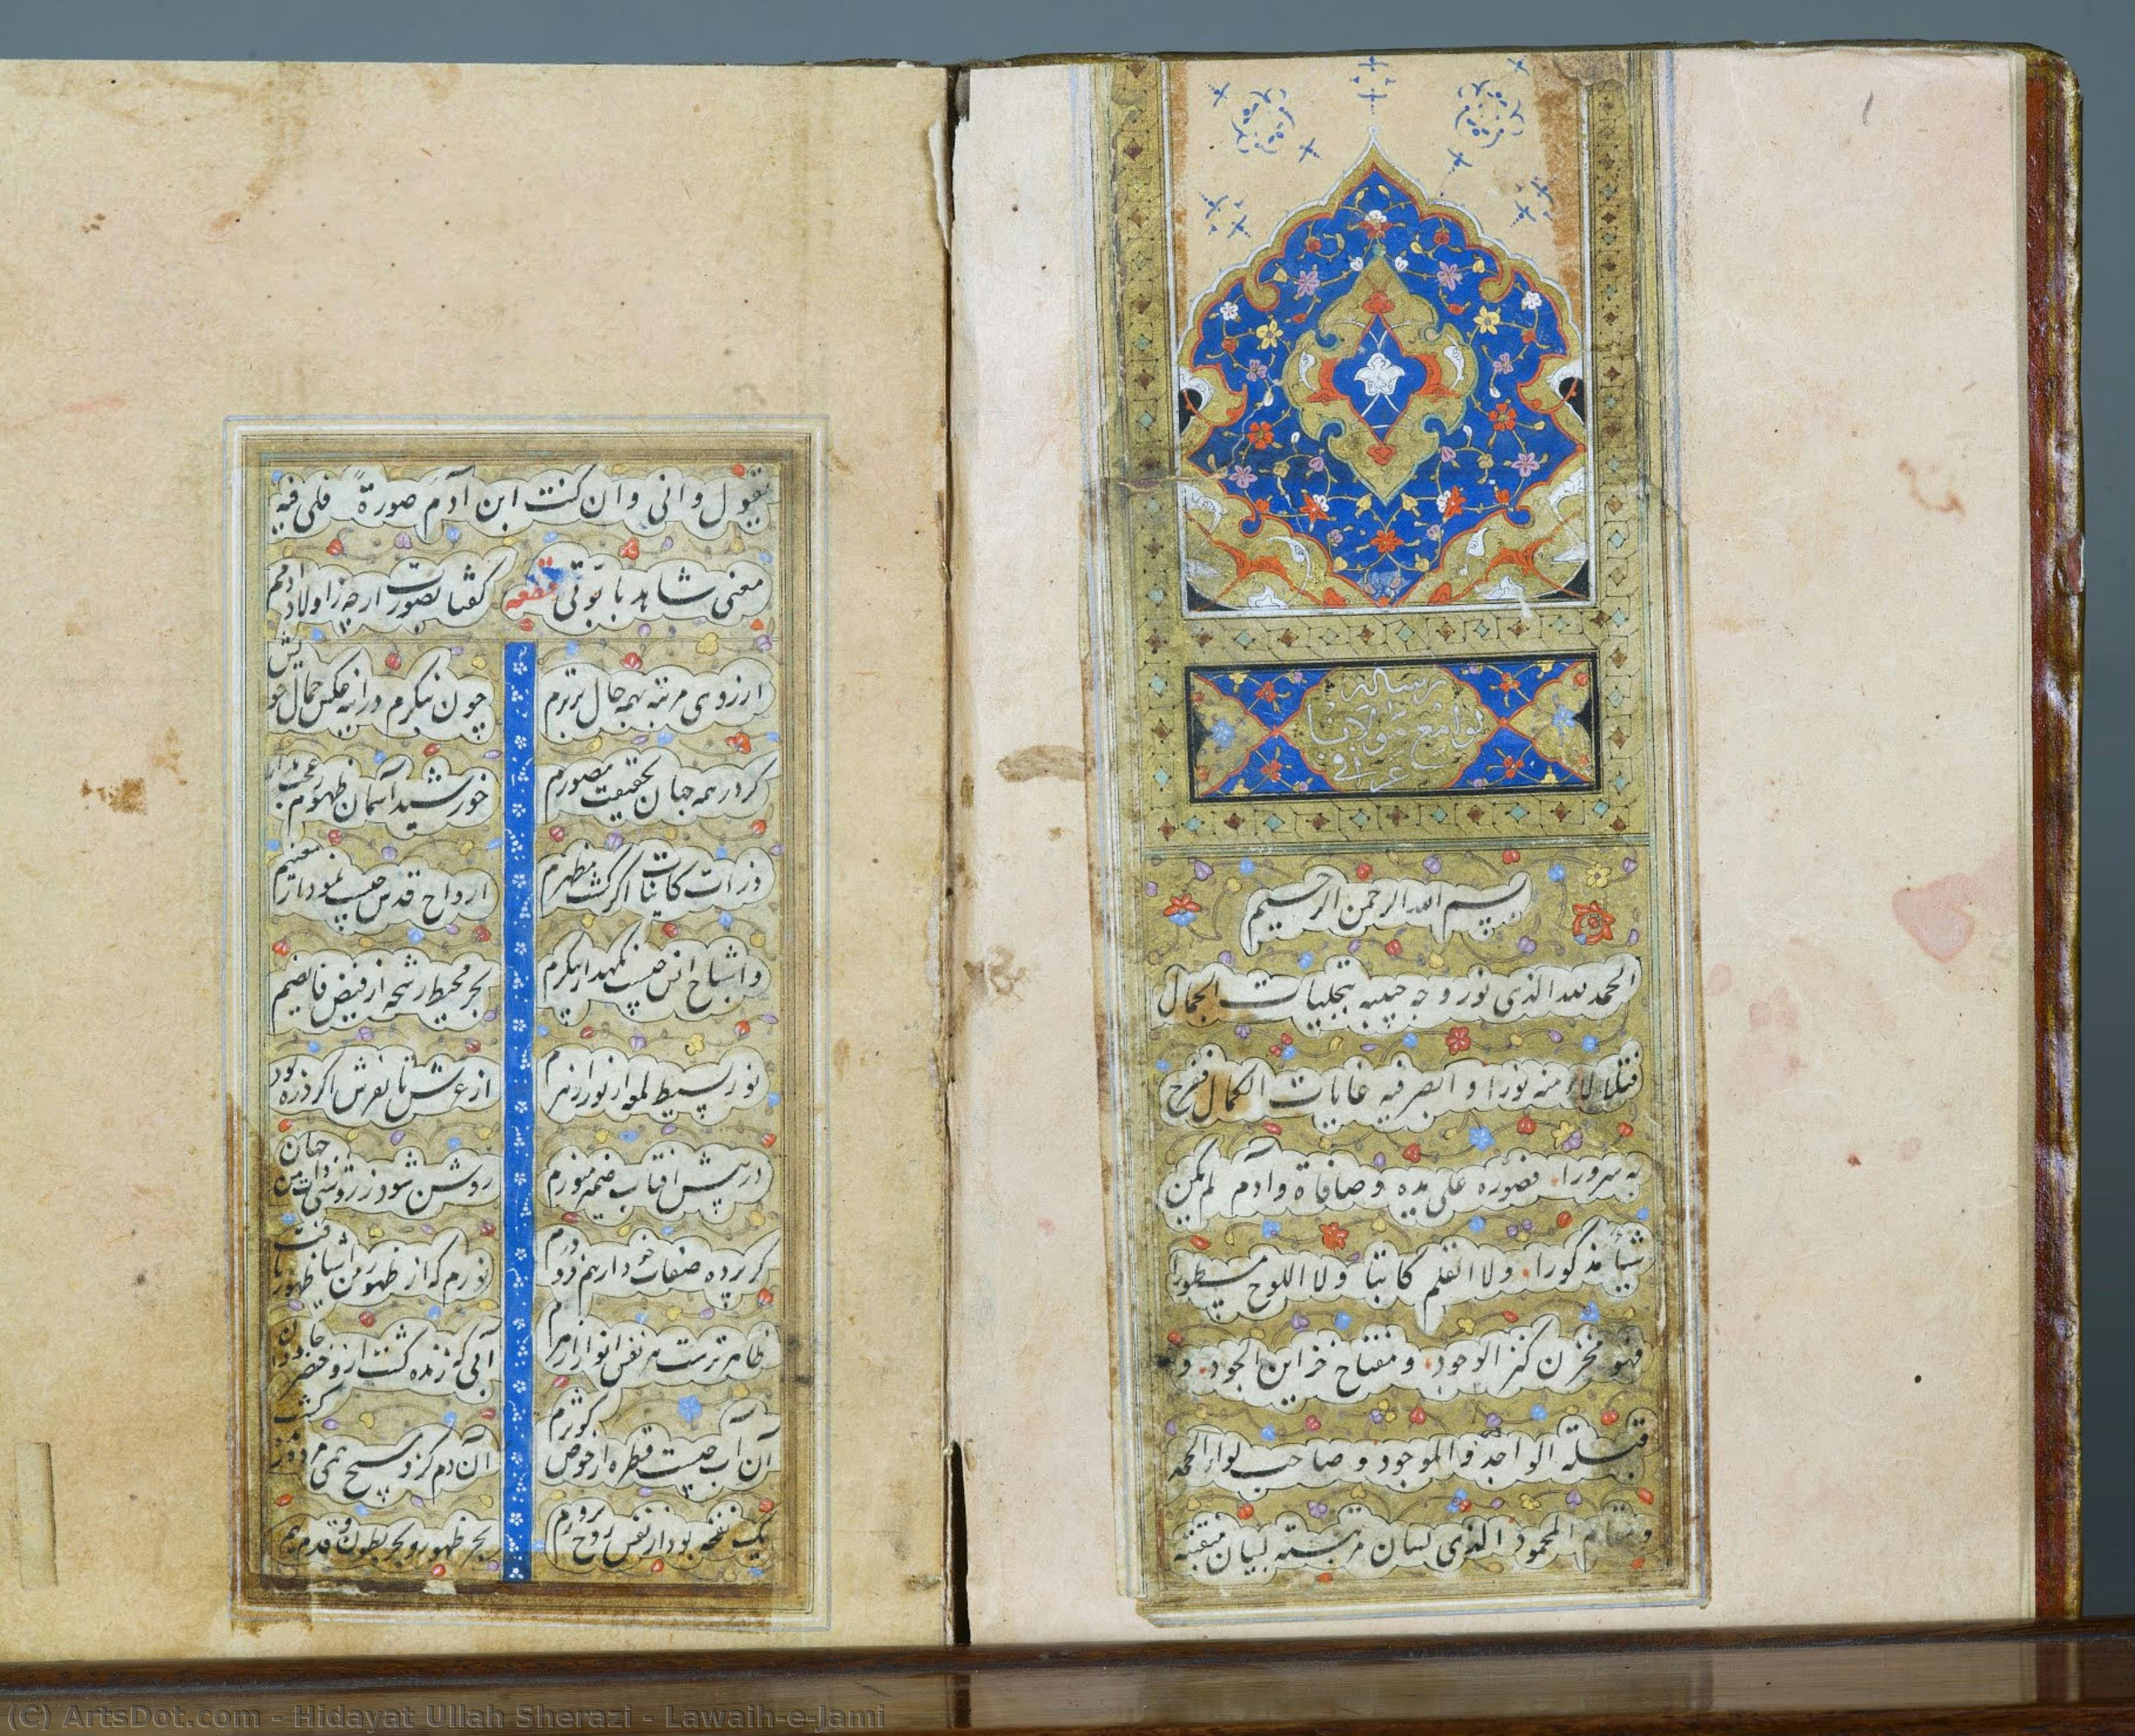 رساله
لوامع مولانا
عراقی
بسم الله الرحمن الرحیم
الحمد لله الذی نور وجه حبیبه بتجلیات الجمال
فتلالاء منه نورا و ابصر فیه غایات الکمال ففرح
به سرورا فصوره علی یده و صافاه وآدم لم یکن
شیأ مذکورا ولا القلم کاتبا ولا اللوح مسطورا
فهو مخزن کنز الوجود و مفتاح خزاین الجود و
قبلة الواجد والموجود و صاحب لواء الحمد
و مقام المحمود الذی لسان مرتبته لبیان منقبته
یقول وانی وان کنت ابن آدم صورة فلی فیه
معنی شاهد بابوتی قطعه کفتا بصورت ارچه ز اولاد آدمم
ازروی مرتبه بهمه حال برترم چون بنکرم در آینه عکس جمال خویش
کردد همه جهان بحقیقت مصورم خورشید آسمان ظهورم عجب مدار
ذرات کاینات اکر کشت مظهرم ارواح قدس چیست نمودار معنیم
واشباح انس چیست نکهدار پیکرم بحر محیط رشحه از فیض فایضم
نور بسیط لمعه از نور ازهرم از عرش تا بفرش اکر ذره بود
در پیش افتاب ضمیر منورم روشن شود ز روشنی ذات من جهان
کر پرده صفات خود از هم فرو درم نورم که از ظهور من اشیا ظهور یافت
ظاهر ترست هر نفس انوار ازهرم آبی که زنده کشت ازو خضر جاودان
آن آب چیست قطره از حوض کوثرم آن دم کزو مسیح همی مرده زنده کرد
یک نفخه بود از نفس روح پرورم بحر ظهور و بحر بطون و قدم بهم
(C) ArtsDot.com - Hidayat Ullah Sherazi - Lawaih-e-Jami